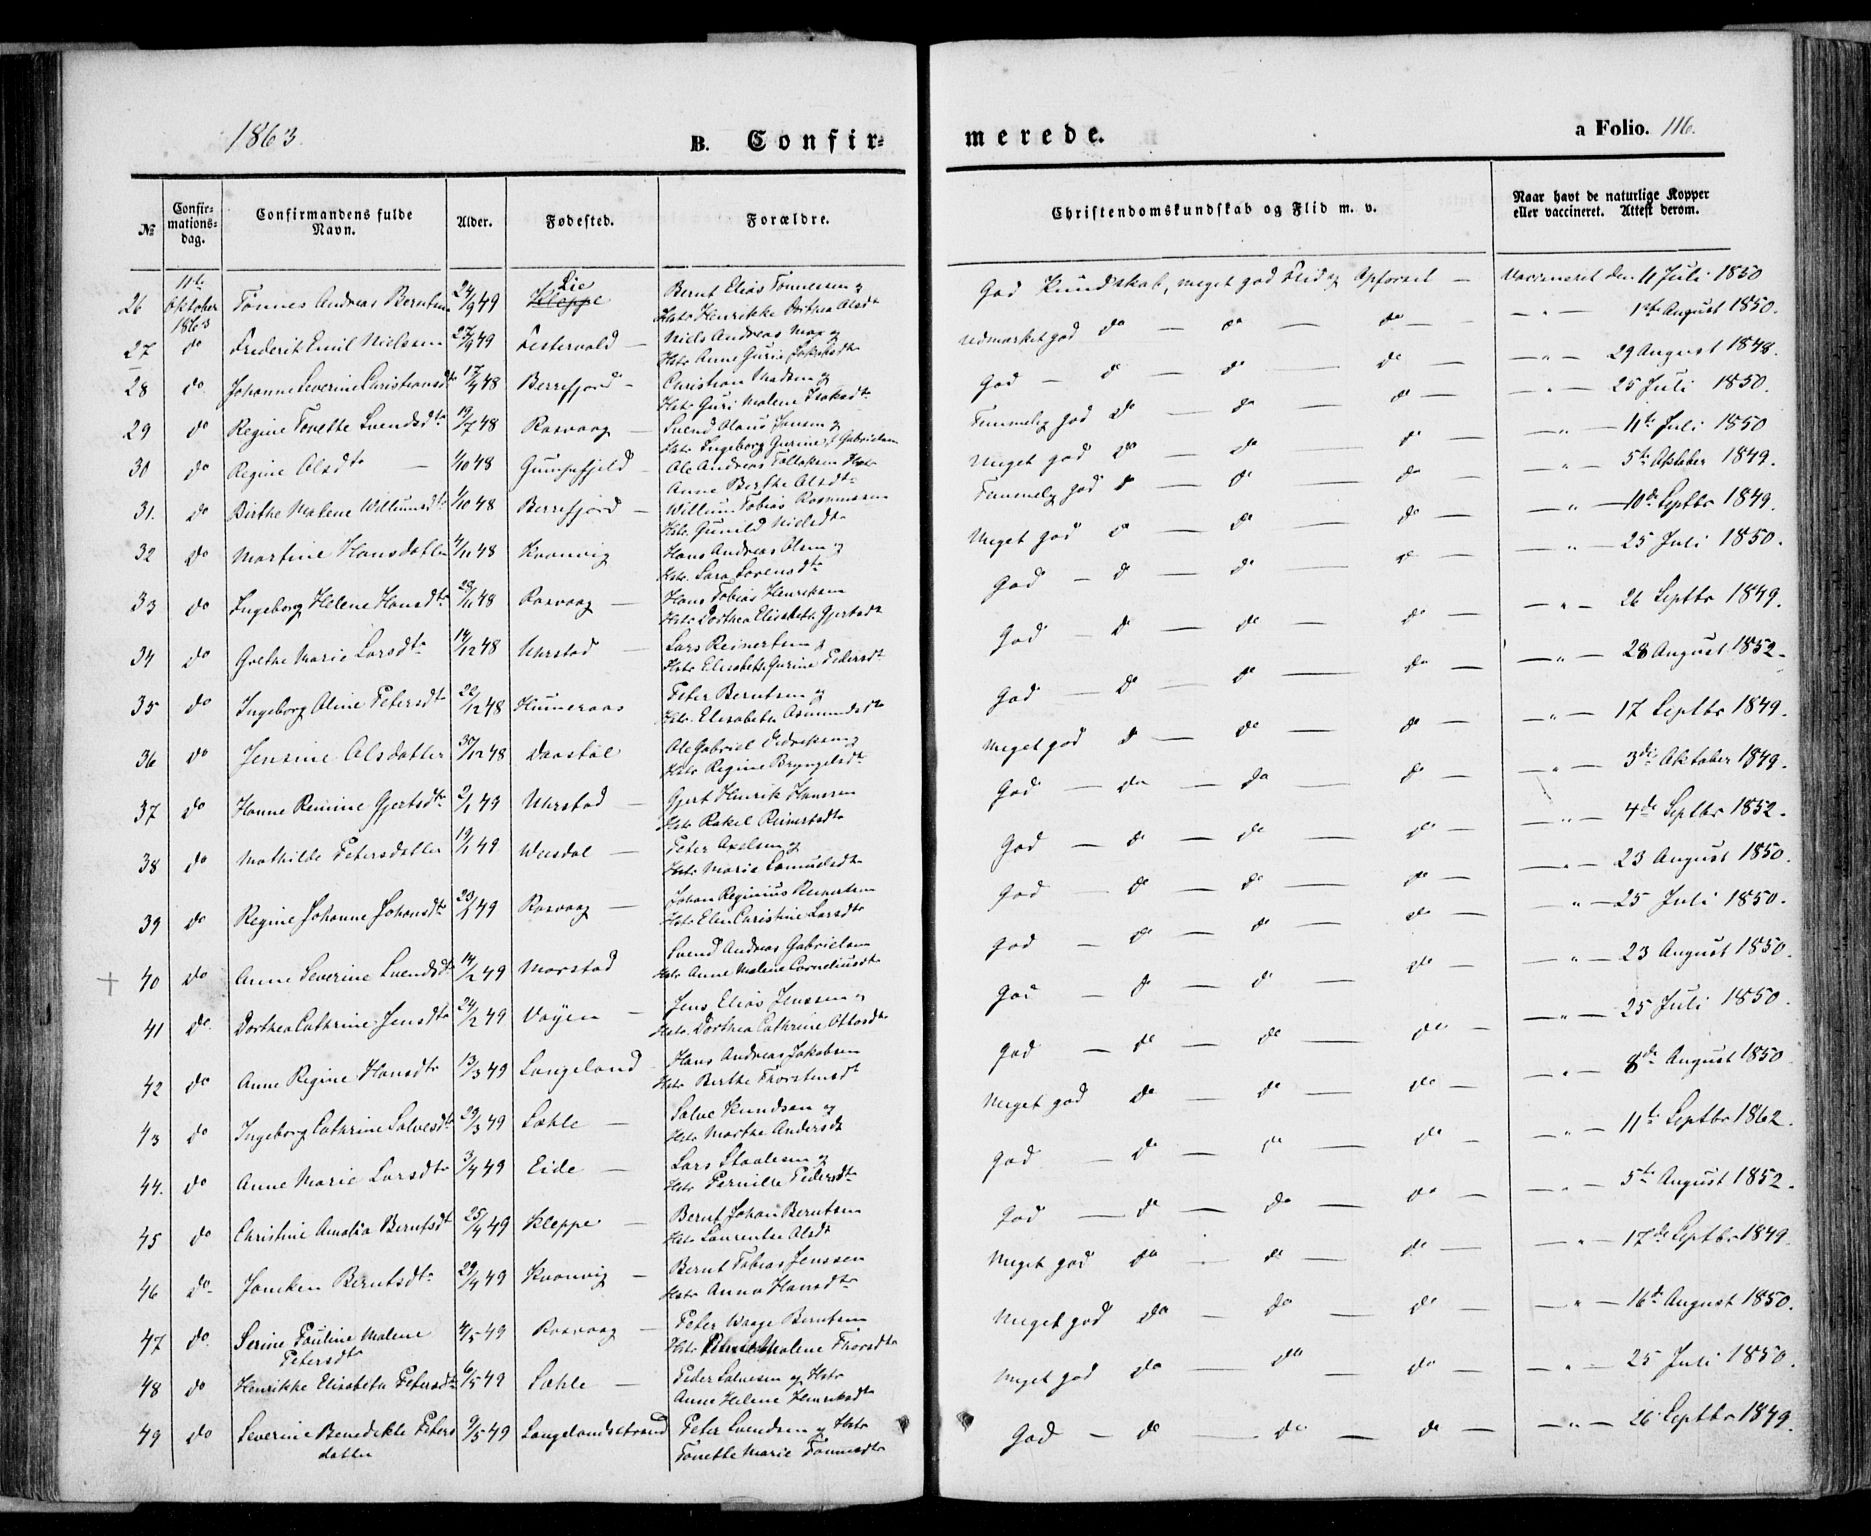 1863.
B. Confir=
merede.
a Folio. 116.
№
Confir=
mations=
dag.
Confirmandens fulde
Navn.
Alder.
Fødested.
Forældre.
Christendomskundskab og Flid m. v.
Naar havt de naturlige Kopper
eller vaccineret. Attest derom.
26 11te Oktober 1863 Tønnes Andreas Berntsen 24/9 49 Lie Kleppe Bernt Elias Tønnesen og
Hstr Henrikke Dorthea Olsdtr
God Kundskab, meget god Flid og Opførsel — Vaccineret den 11 Juli 1850
27 do Frederik Emil Nielsen 27/9 49 Festervold — Niels Andreas Max og
Hstr Anne Gurine Jakobsdtr
Udmærket god do — do — do — — " — 1ste August 1850.
28 do Johanne Severine Christiansdtr 17/4 48 Berrefjord — Christian Madsen og
Hstr Guri Malene Isaksdtr
God — do — do — do — — " — 29 August 1848.
29 do Regine Tovette Svendsdtr 13/7 48 Rosvaag — Svend Olaus Jensen og
Hstr Ingeborg Gurine Gabrielsen
Temmelig god do — do — do — — " — 25 Juli 1850.
30 do Regine Olsdtr — 1/10 48 Gumpefjeld — Ole Andreas Tollaksen Hstr
Anne Birthe Olsdtr
Meget god do — do — do — " — 11te Juli 1850
31. do Birthe Malene Willumsdtr 1/10 48 Berrefjord — Willum Tobias Rasmussen
Hstr. Gunild Nielsdtr
Temmelig god do — do — do — " — 5te Oktober 1849.
32 do Martine Hansdatter 4/11 48 Kvanvig Hans Andreas Olsen og
Hstr. Sara Sørensdtr
Meget god do — do — do — " — 10de Septbr 1849.
33 do Ingeborg Helene Hansdtr 28/11 48 Rosvaag — Hans Tobias Henriksen
Hstr Dorthea Elisabeth Gjertsdtr
God — do — do — do — " — 25 Juli 1850.
34 do Grethe Marie Larsdtr 14/12 48 Uhrstad — Lars Reinertsen og
Hstr Elisabeth Gurine Pedersdtr
God — do — do — do — " — 26 Septbr 1849.
35 do Ingeborg Oline Petersdtr 22/12 48 Hummeraas Peter Berntsen og
Hstr. Elisabeth Asmundsdtr
God — do — do — do — — " — 28 August 1852.
36 do Jensine Olsdatter 30/12 48 Daastøl Ole Gabriel Didriksen og
Hstr Regine Bryngelsdtr
Meget god do — do — do — — " — 17 Septbr 1849.
37 do Hanne Remine Gjertsdtr 2/1 49 Uhrstad — Gjert Henrik Hansen
Hstr Rakel Reinertsdtr
God — do — do — do — — " — 3die Oktober 1849.
38 do Mathilde Petersdatter 19/1 49 Weisdal — Peter Axelsen og
Hstr Marie Samuelsdtr
God — do — do — do — — " — 4de Septbr 1852.
39 do Regine Johanne Johansdtr 23/1 49 Rosvaag — Johan Reginius Reinertsen
Hstr Elen Christine Larsdtr
God — do — do — do — — " — 23 August 1850.
40 do Anne Severine Svendsdtr 14/2 49 Morstad Svend Andreas Gabrielsen
Hstr Anne Malene Corneliusdtr
God — do — do — do — " — 25 Juli 1850.
41 do Dorthea Cathrine Jensdtr 24/2 49 Vøyen — Jens Elias Jenssen og
Hstr. Dorthea Cathrine Ottosdtr
God — do — do — do — " — 23 August 1850.
42 do Anne Regine Hansdtr 13/3 49 Langeland Hans Andreas Jakobsen
Hstr Birthe Thorstensdtr
God — do — do — do — — " — 25 Juli 1850.
43 do Ingeborg Cathrine Salvesdtr 29/3 49 Sæhle — Salve Knudsen og
Hstr Marthe Andersdtr
Meget god do — do — do — — " — 8de August 1850
44. do Anne Marie Larsdtr 3/4 49 Eide — Lars Staalesen og
Hstr Pernille Pedersdtr
God — do — do — do — — " — 11te Septbr 1862.
45 do Christine Amalia Berntsdtr 25/4 49 Kleppe — Bernt Johan Berntsen
Hstr Laurentse Olsdtr
God — do — do — do — — " — 5te August 1852.
46 do Joneken Berntsdtr 29/4 49 Kvanvig — Bernt Tobias Jenssen
Hstr Anna Hansdtr
Meget god do — do — do — — " — 17de Septbr 1849.
47 do Serine Pauline Malene
Petersdtr 4/5 49 Rosvaag — Peter Waage Berntsen
Hstr Malene Thorsdtr
Meget god do — do — do — — " — 16de August 1850.
48 do Henrikke Elisabeth Petersdtr 6/5 49 Sæhle — Peder Salvesen og Hstr
Anne Helene Henriksdtr
Meget god do — do — do — — " — 25 Juli 1850.
49 do Severine Benedikte Peters
datter 9/5 49 Langelandsstrand Peter Svendsen og Hstr
Tonette Marie Tønnesdtr
God — do — do — do — — " — 26 Septbr 1849.